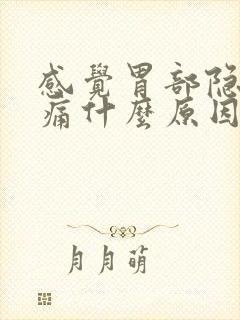 感覺胃部隐
痛什麼原因
月月萌